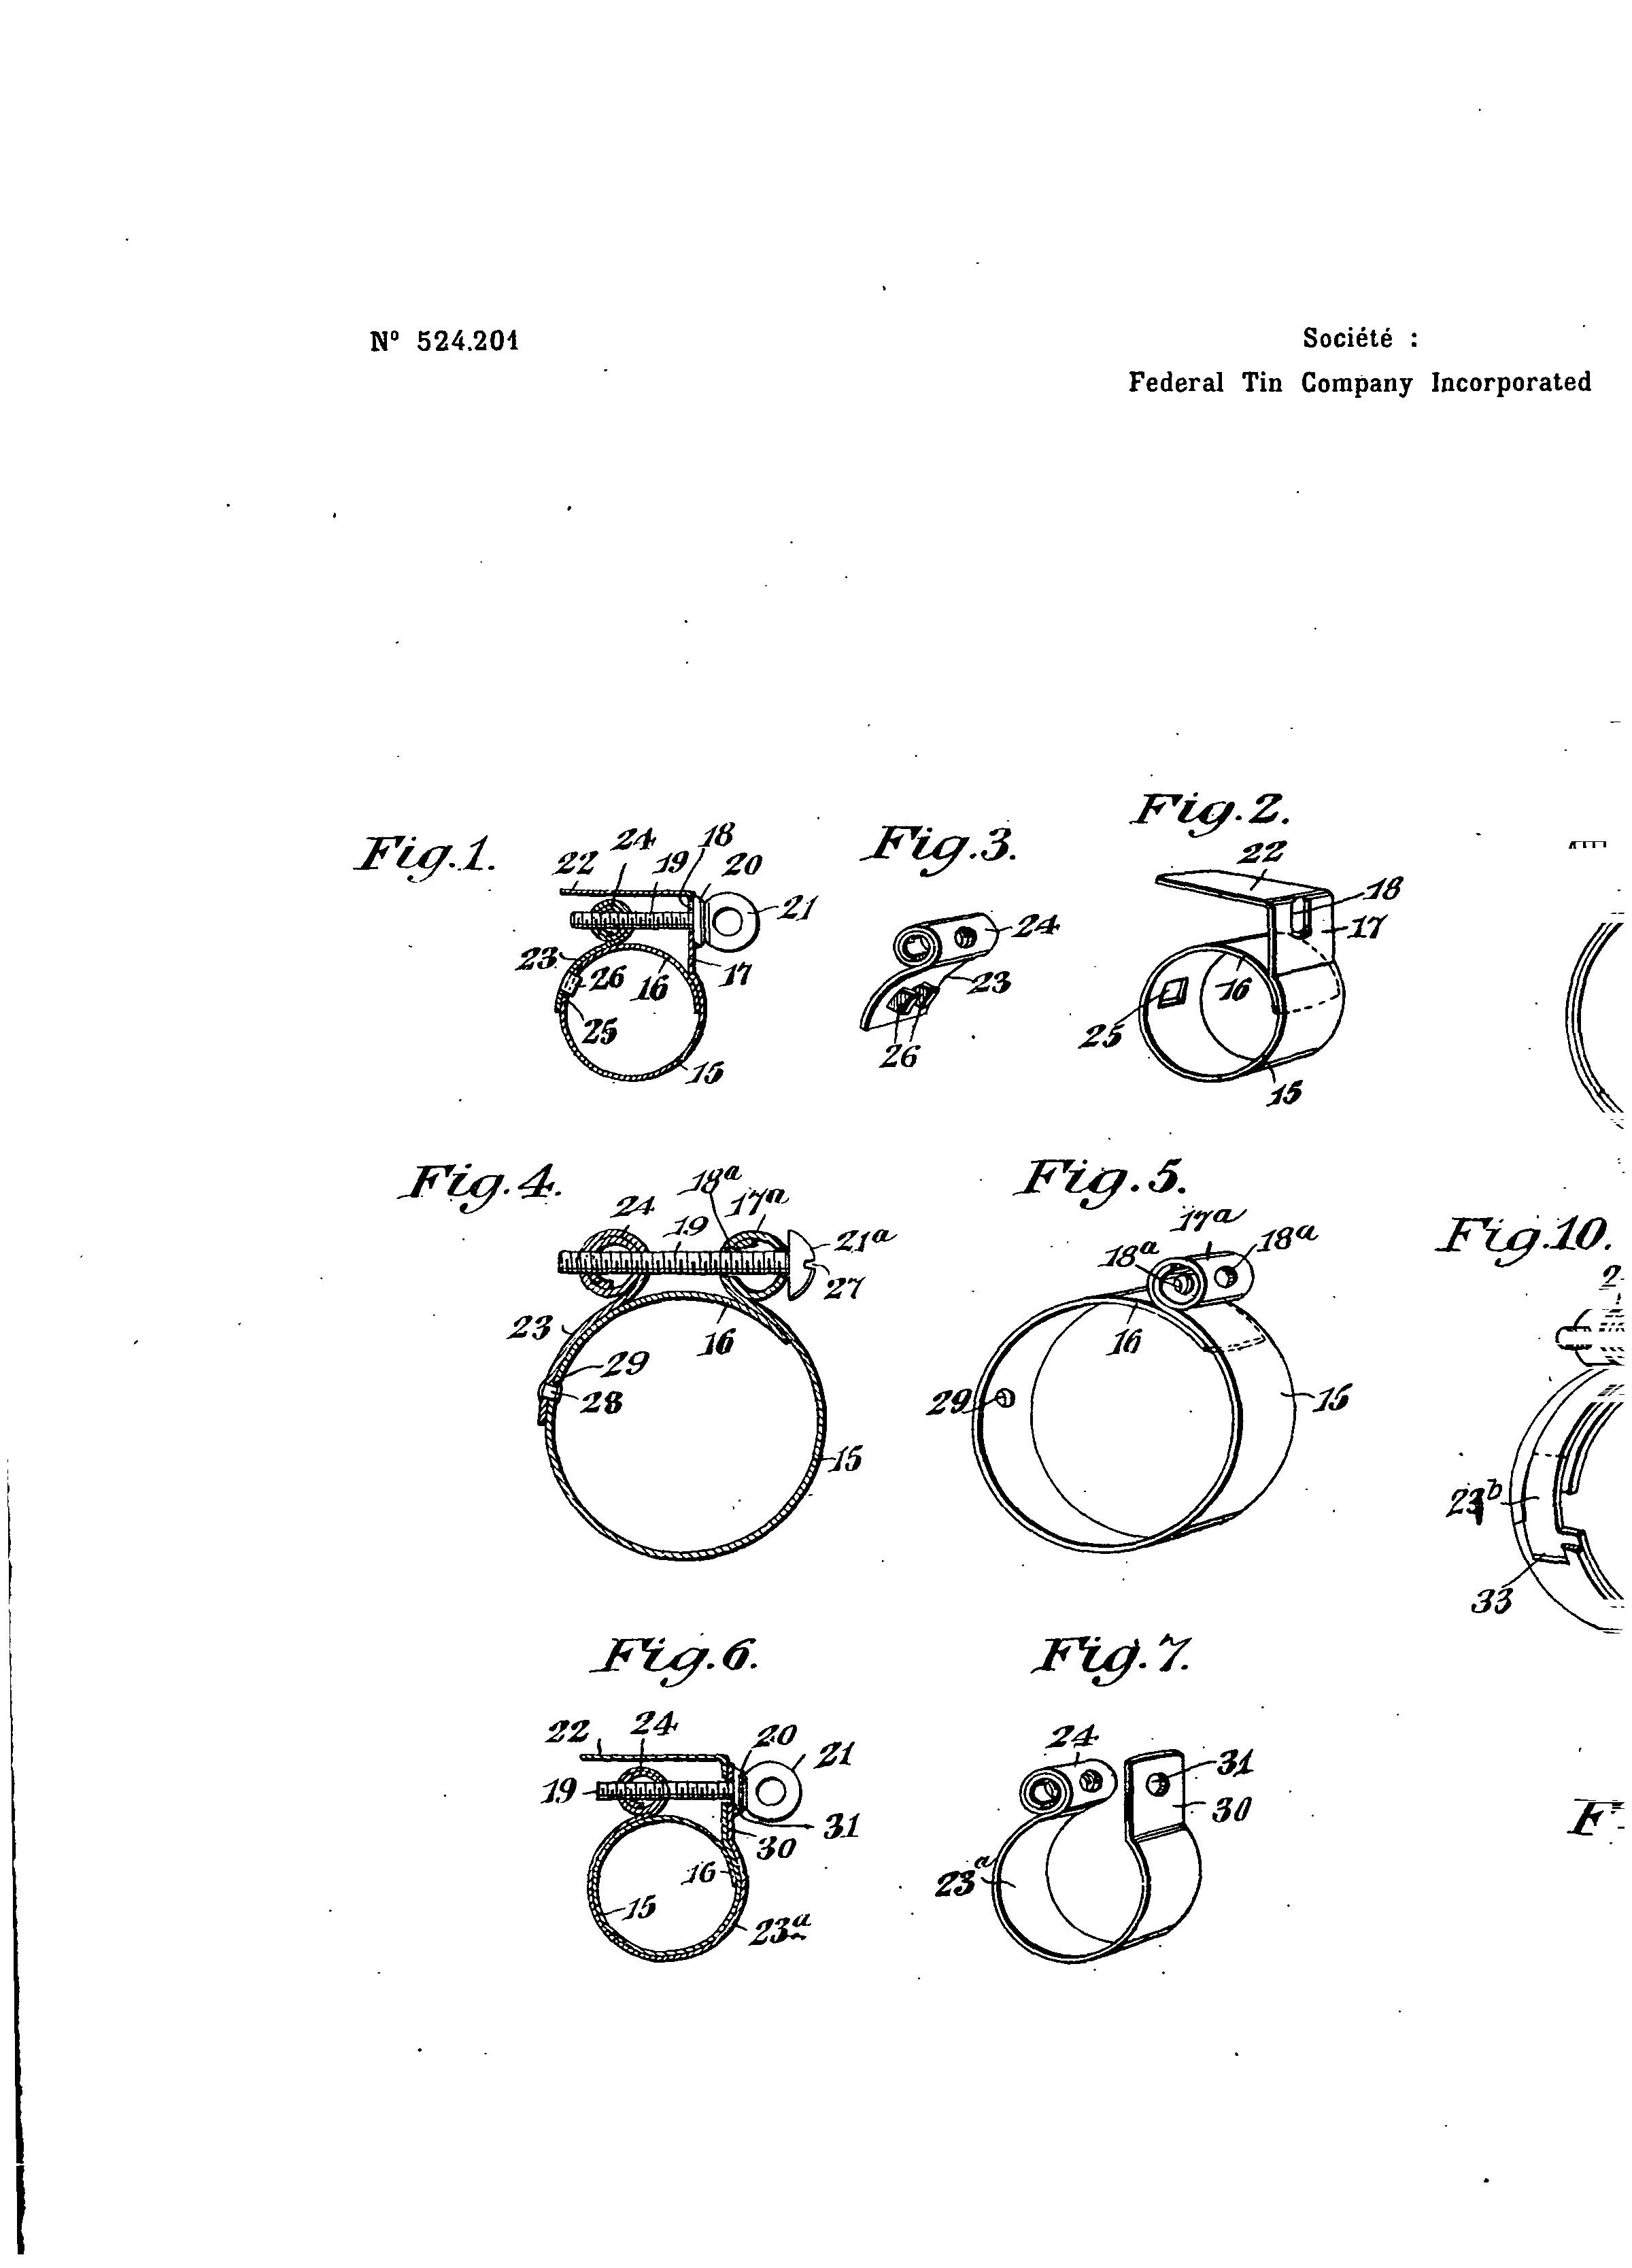 Nº 524.201
Société :
Federal Tin Company Incorporated
Fig.1.
22
24
19
18
20
21
23
26
16
17
25
15
Fig.3.
24
23
26
Fig.2.
22
18
17
16
25
15
Fig.4.
24
19
18a
17a
21a
27
23
16
29
28
15
Fig.5.
17a
18a
18a
16
29
15
Fig.10.
23b
33
Fig.6.
22
24
20
21
19
31
30
16
15
23a
Fig.7.
24
31
30
23a